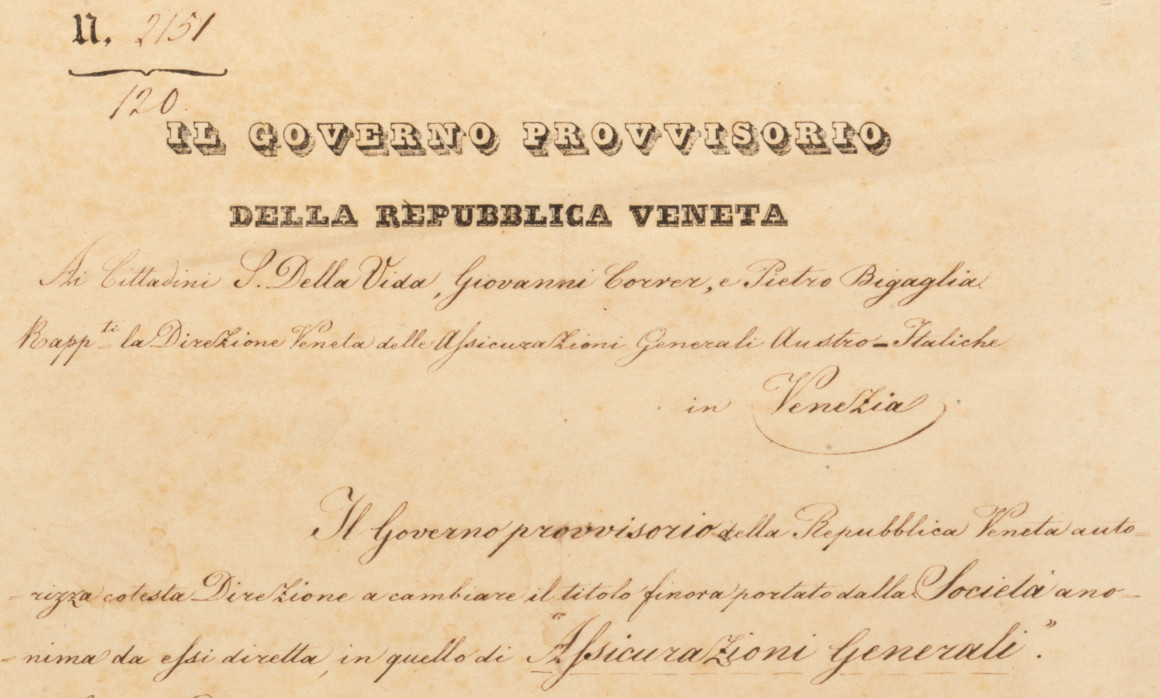 N. 2151
120
IL GOVERNO PROVVISORIO
DELLA REPUBBLICA VENETA
Ai Cittadini S. Della Vida, Giovanni Correr, e Pietro Bigaglia
Rapp.ti la Direzione Veneta delle Assicurazioni Generali Austro-Italiche
in Venezia
Il Governo provvisorio della Repubblica Veneta auto=
-rizza cotesta Direzione a cambiare il titolo finora portato dalla Società ano-
-nima da essi diretta, in quello di "Assicurazioni Generali".